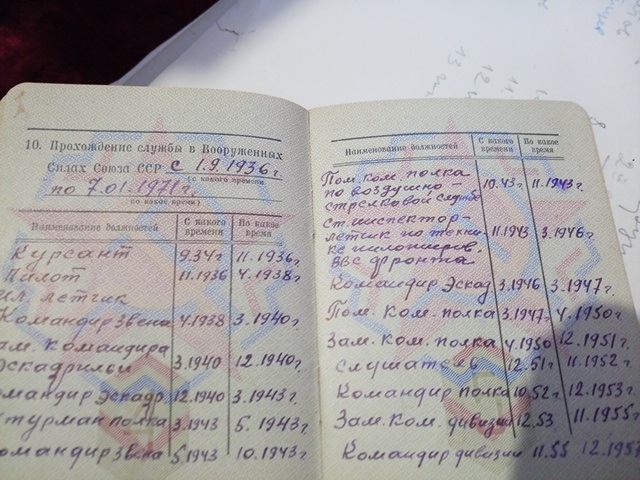 10. Прохождение службы в Вооруженных
Силах Союза ССР с 1.9.1936 г.
(с какого времени
по 7.01.1971 г.
по какое время)
Наименование должностей С какого времени По какое время
Курсант 9.34 г 11.1936 г.
Пилот 11.1936 4.1938 г.
мл. летчик
Командир звена 4.1938 3.1940 г.
Зам. командира
эскадрильи 3.1940 12.1940 г.
командир эскадр. 12.1940 3.1943 г.
Штурман полка 3.1943 5.1943 г.
командир звена 5.1943 10.1943 г.
Наименование должностей С какого времени По какое время
Пом. ком. полка
по воздушно- 10.43 г 11.1943 г.
стрелковой службе
Ст. инспектор-
летчик по техни- 11.1943 3.1946 г.
ке пилотиров.
ВВС фронта
Командир Эскад 3.1946 3.1947 г.
Пом. Ком. полка 3.1947 г 4.1950 г.
Зам. ком. полка 4.1950 12.1951 г.
слушатель 12.51 г 11.1952 г.
Командир полка 10.52 г. 12.1953 г.
Зам. Ком. дивизии 12.53 11.1955 г.
Командир дивизии 11.55